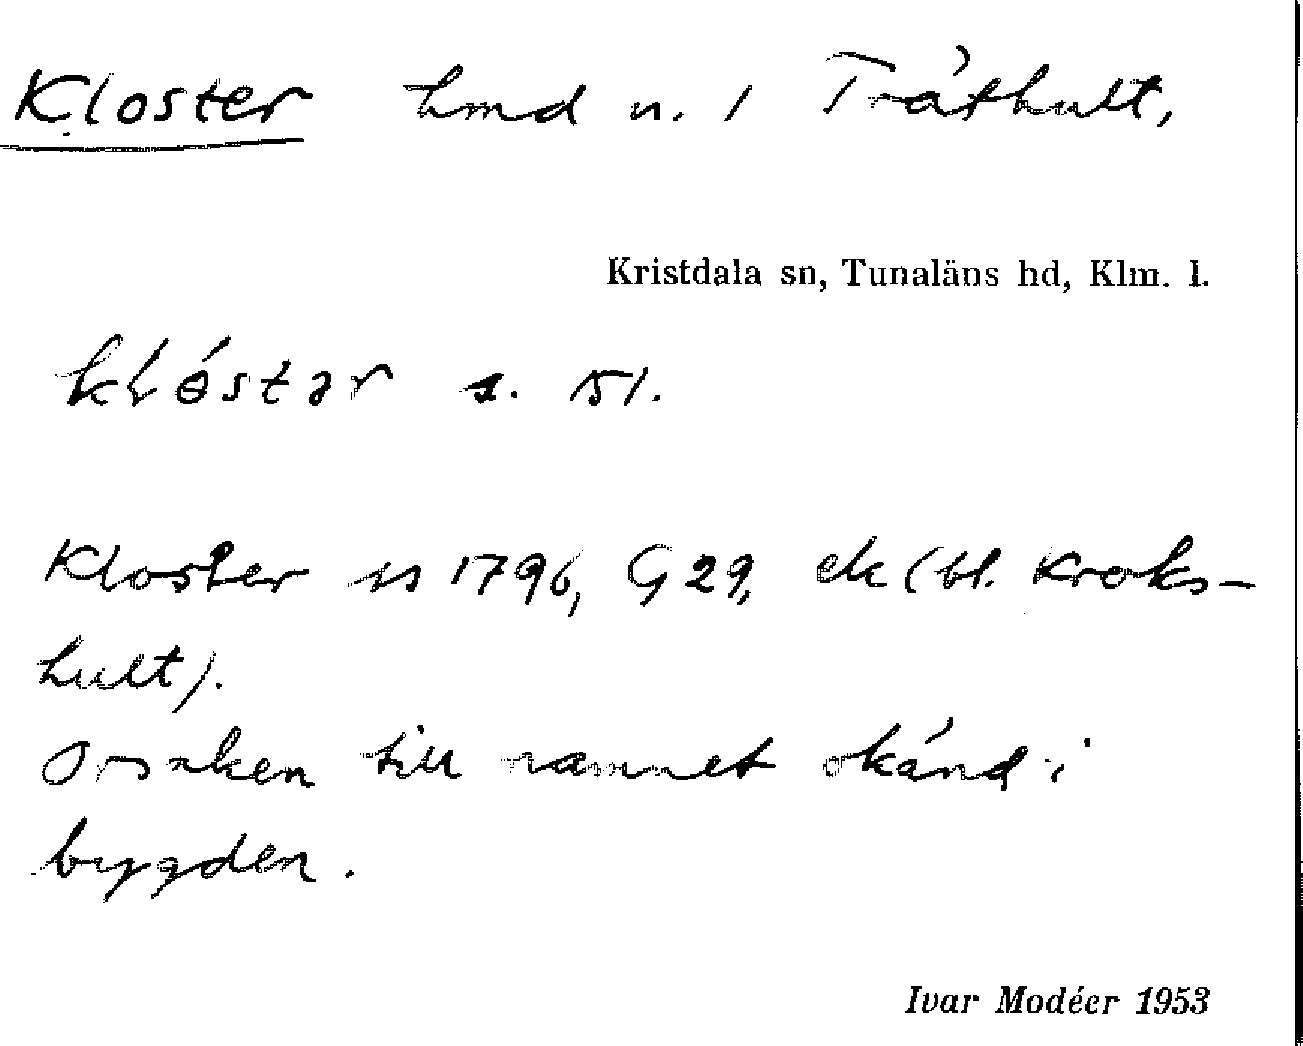 Kloster hmd n. 1 Tråthult,
Kristdala sn, Tunaläns hd, Klm. l.
klóstər s. 151.
Kloster 1796, G 29, ek (bl. Kroks-
hult).
Orsaken till namnet okänd i
bygden.
Ivar Modéer 1953